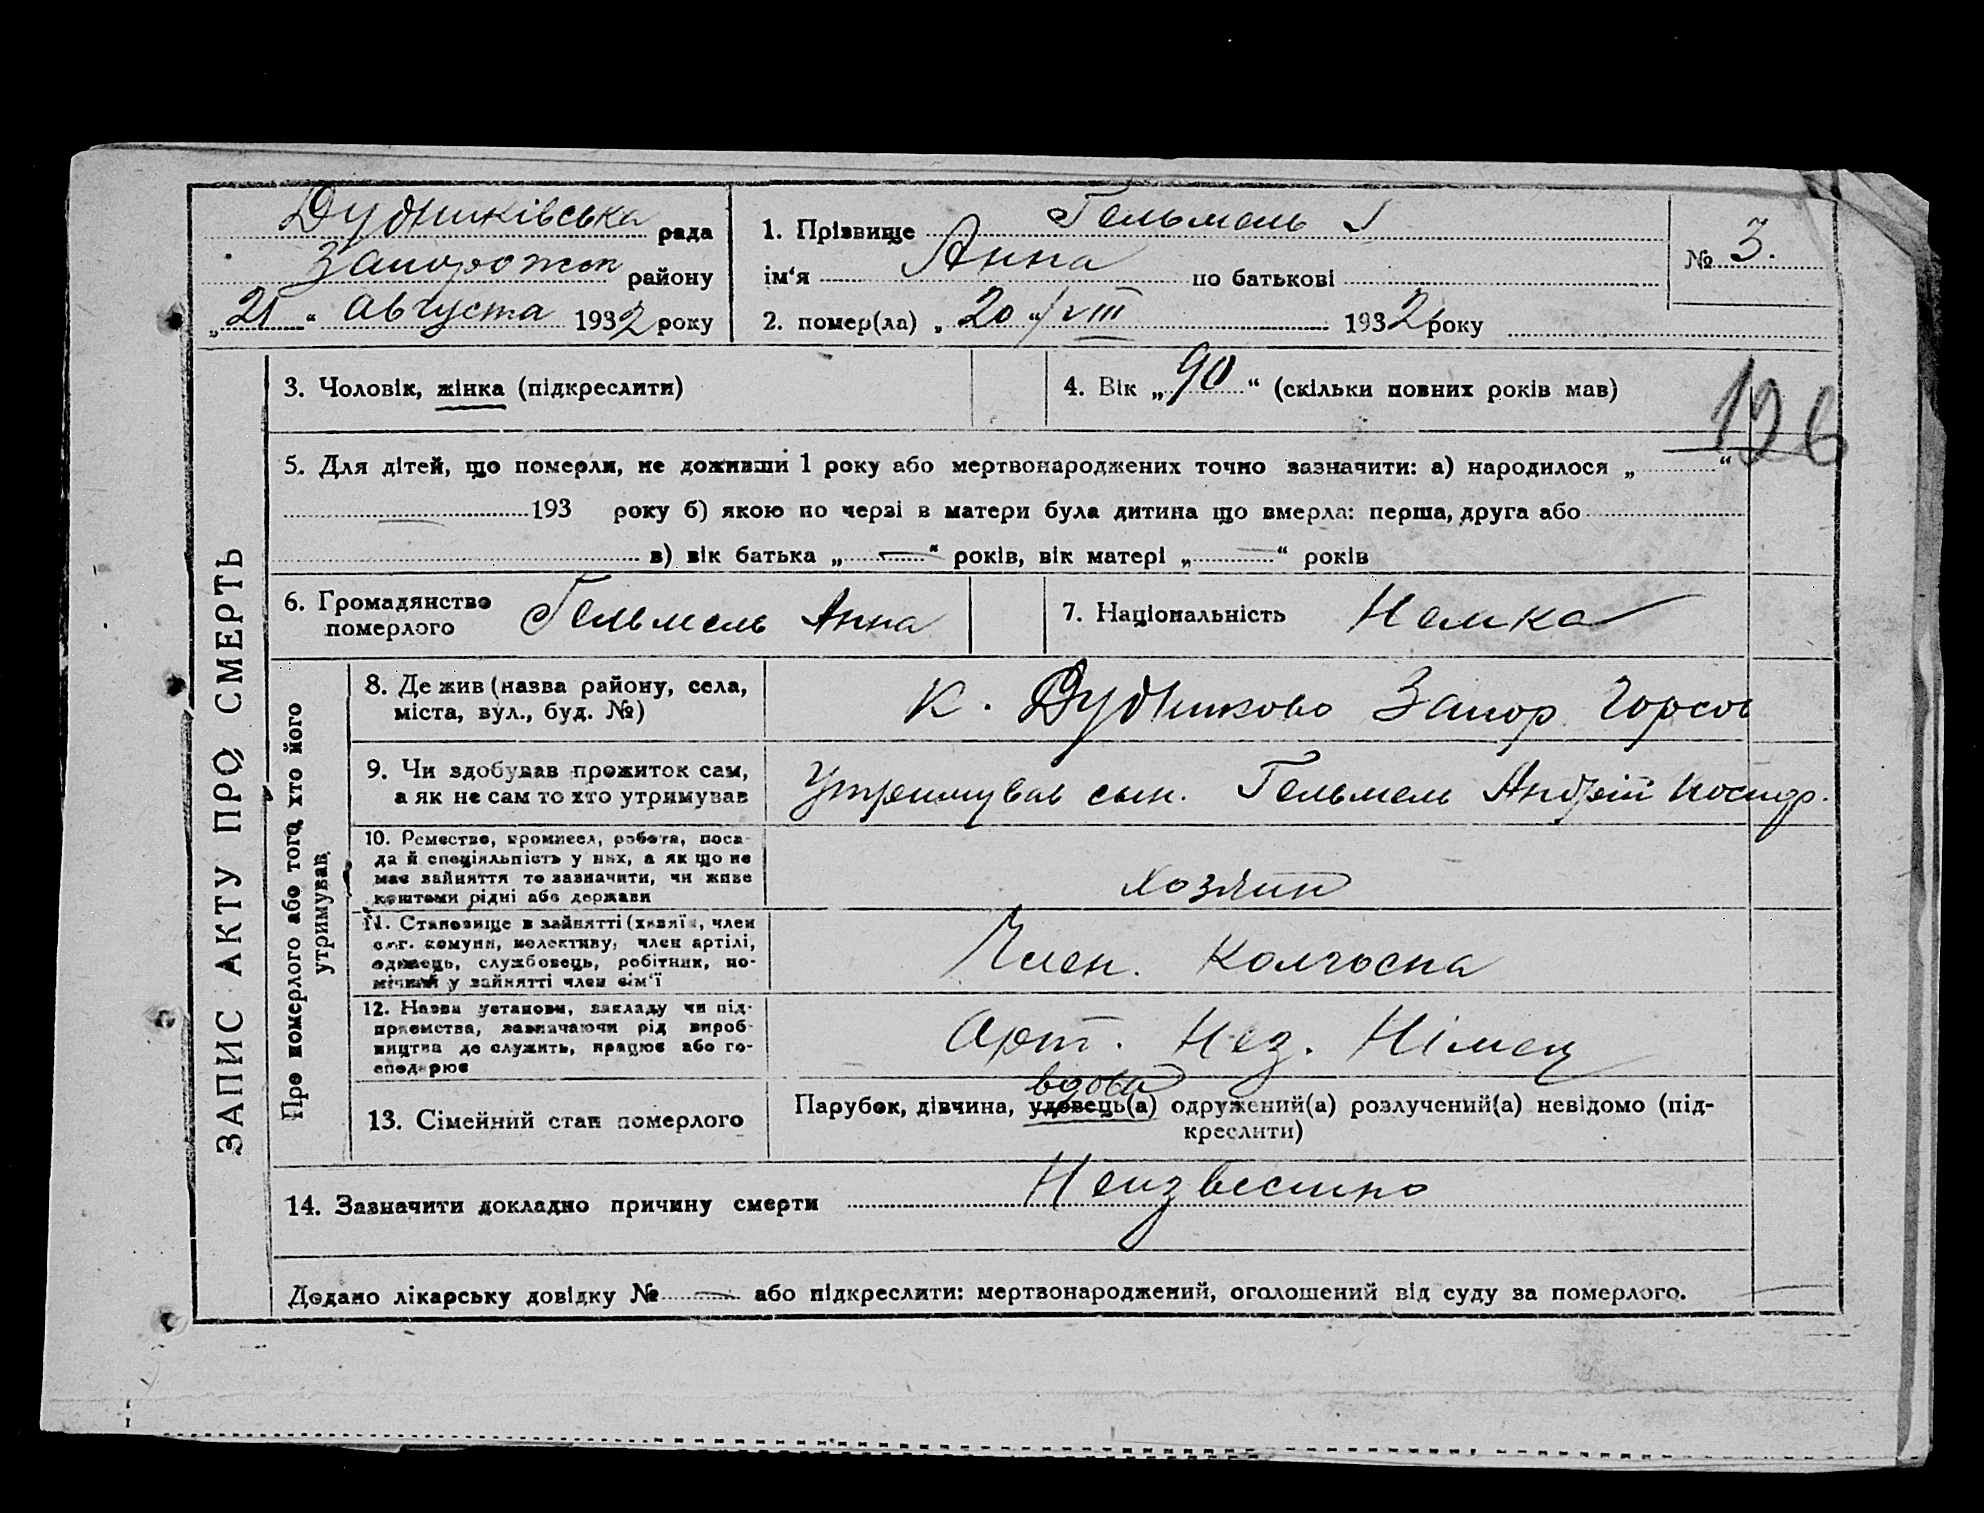 Дудниківська рада
Запорожск району
„21“ августа 1932 року
1. Прізвище Гельмель
ім‘я Анна по батькові
2. помер(ла) „20“/VIII 1932 року
№ 3.
ЗАПИС АКТУ ПРО СМЕРТЬ
3. Чоловік, жінка (підкреслити)
4. Вік „90“ (скільки повних років мав)
126
5. Для дітей, що померли, не доживши 1 року або мертвонароджених точно зазначити: а) народилося „ “
193 року б) якою по черзі в матери була дитина що вмерла: перша, друга або
в) вік батька „—“ років, вік матері „—“ років
6. Громадянство
померлого
Гельмель Анна
7. Національність Немка
Про померлого або того, хто його
утримував
8. Де жив (назва району, села,
міста, вул., буд. №)
к. Дудниково Запор. Горсов
9. Чи здобував прожиток сам,
а як не сам то хто утримував
Утримував сын. Гельмель Андрій
10. Ремество, промисел, робота, поса-
да й спеціяльність у них, а як що не
має зайняття то зазначити, чи живе
коштами рідні або держави
хозяин
11. Становище в зайнятті (хазяїн, член
с.-г. комуни, колективу, член артілі,
одинець, службовець, робітник, по-
мічний у зайнятті член сім‘ї
Член. Колгоспа
12. Назва установи, закладу чи під-
приємства, зазначаючи рід вироб-
ництва де служить, працює або го-
сподарює
Арт. Нез. Німец
13. Сімейний стан померлого
вдова
Парубок, дівчина, удовець(а) одружений(а) розлучений(а) невідомо (під-
креслити)
14. Зазначити докладно причину смерти Неизвестно
Додано лікарську довідку № — або підкреслити: мертвонароджений, оголошений від суду за померлого.